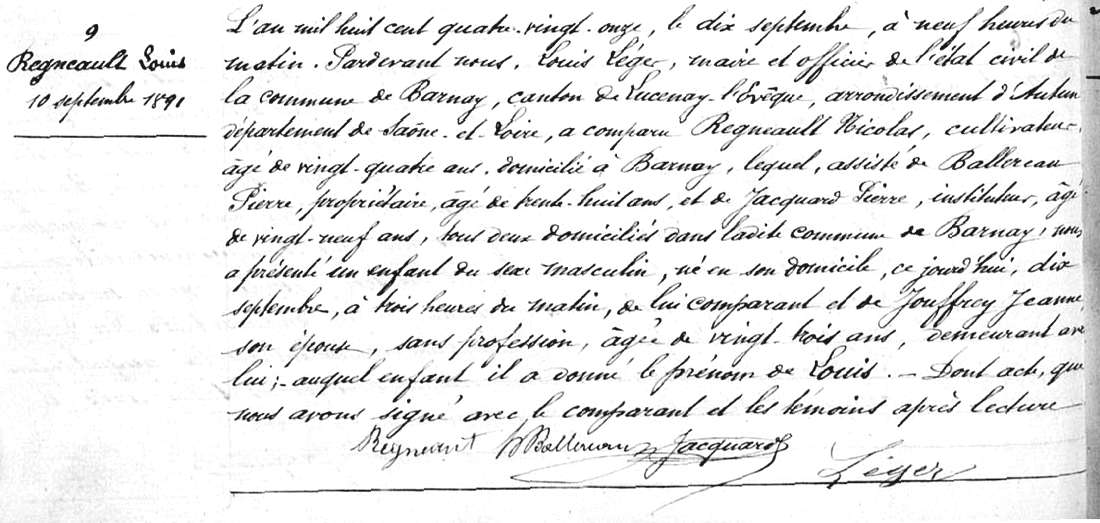 9
Regneault Louis
10 septembre 1891
L'an mil huit cent quatre-vingt-onze, le dix septembre, à neuf heures du
matin. Pardevant nous, Louis Léger, maire et officier de l'état civil de
la commune de Barnay, canton de Lucenay-l'Evêque, arrondissement d'Autun
département de Saône-et-Loire, a comparu Regneault Nicolas, cultivateur,
âgé de vingt-quatre ans, domicilié à Barnay, lequel, assisté de Ballereau
Pierre, propriétaire, âgé de trente-huit ans, et de Jacquard Pierre, instituteur, âgé
de vingt-neuf ans, tous deux domiciliés dans ladite commune de Barnay, nous
a présenté un enfant du sexe masculin, né en son domicile, ce jourd'hui, dix
septembre, à trois heures du matin, de lui comparant et de Jouffrey Jeanne
son épouse, sans profession, âgée de vingt-trois ans, demeurant avec
lui; - auquel enfant il a donné le prénom de Louis. - Dont acte, que
nous avons signé avec le comparant et les témoins après lecture
Regneault Ballereau Jacquard
Léger